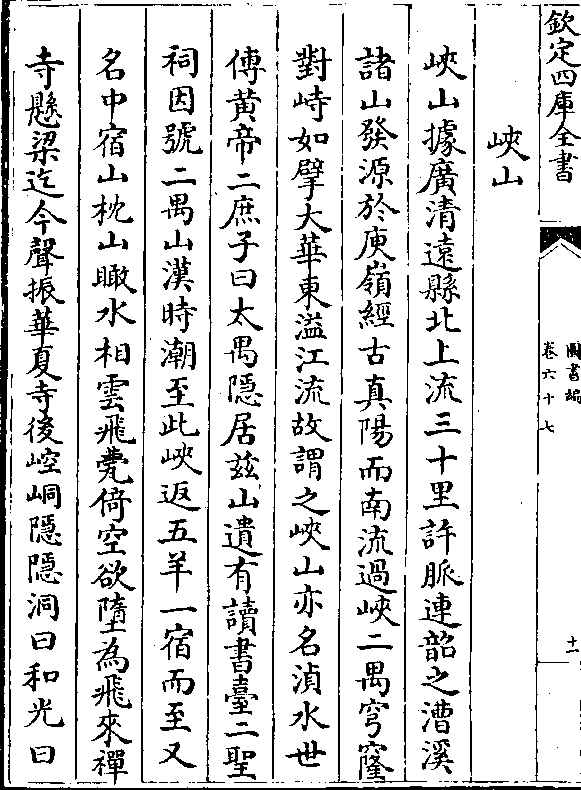 欽定四庫全書
圖書編
卷六十七
十一
峽山
峽山據廣清遠縣北上流三十里許脈連韶之漕溪
諸山發源於庾嶺經古真陽而南流過峽二禺穹窿
對峙如擘大華東溢江流故謂之峽山亦名湞水世
傳黃帝二庶子曰太禺隱居兹山遺有讀書臺二聖
祠因號二禺山漢時潮至此峽返五羊一宿而至又
名中宿山枕山瞰水相雲飛甍倚空欲墮為飛來禪
寺懸梁迄今聲振華夏寺後崆峒隱隱洞曰和光曰